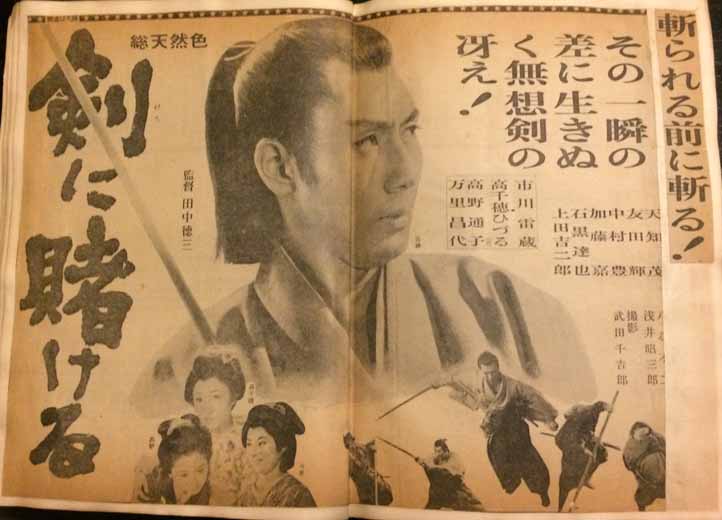 斬られる前に斬る!
その一瞬の
差に生きぬ
く無想剣の
冴え!
総天然色
剣に賭ける
かち
監督 田中徳三
市川雷蔵
高千穂ひづる
高野通子
万里昌代
天知茂
友田輝
中村豊
加藤嘉
石黒達也
上田吉二郎
浅井昭三郎
撮影
武田千吉郎